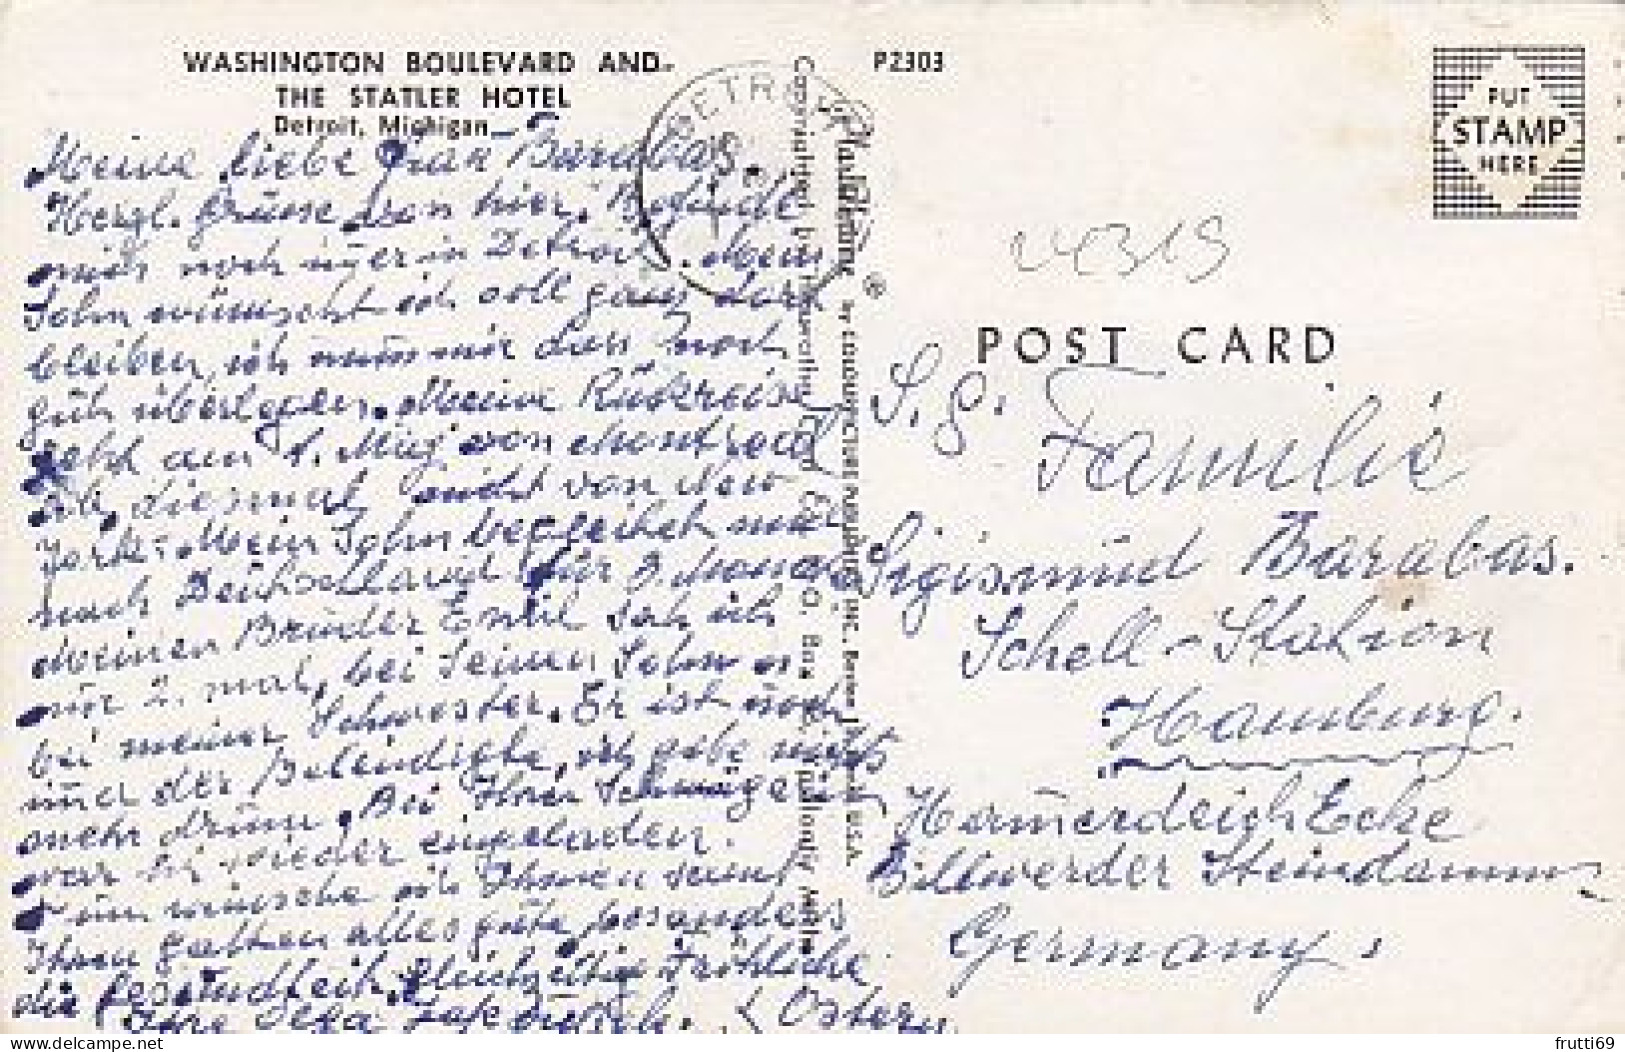 WASHINGTON BOULEVARD AND
THE STATLER HOTEL
Detroit, Michigan
Meine liebe Frau Barabas.
Herzl. Grüsse von hier. Befinde
mich noch immer in Detroit. Mein
Sohn wünscht ich soll ganz dort
bleiben, ich muss mir das noch
gut überlegen. Meine Rükreise
geht am 1. Mai von Montreal
diesmal nicht von New
York. Mein Sohn begleitet mich
nach Deutschland für 3 Monate
Meinen Bruder Emil sah ich
nur 2. mal, bei seinem Sohn u.
bei meiner Schwester. Er ist noch
immer der Beleidigte, ich gebe nichts
mehr drum. Bei Ihrer Schwägerin
war ich wieder eingeladen.
Nun wünsche ich Ihnen samt
Ihren Gatten alles gute, besonders
die Gesundheit. Gleichzeitig Fröhliche
Ostern
Ihre
P2303
DETROIT
Plastichrome ® by COLOURPICTURE PUBLISHERS, INC., Boston 15, Mass., U.S.A.
PUT
STAMP
HERE
04319
POST CARD
S. g.
Familie
Sigismund Barabas.
Schell-Station
Hamburg.
Hammerdeich Ecke
Billwerder Steindamm
Germany.
delcampe.net
frutti69